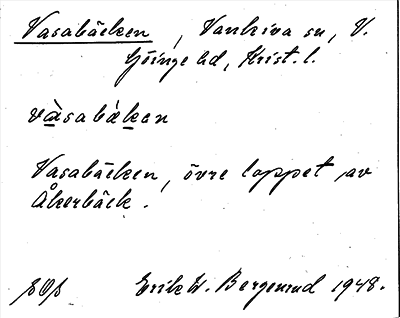 Vasabäcken, Vankiva sn, V.
Göinge hd, Krist. l.
vàsabækan
Vasabäcken, övre loppet av
Åkerbäck.
Erik W. Bergenrud 1948.